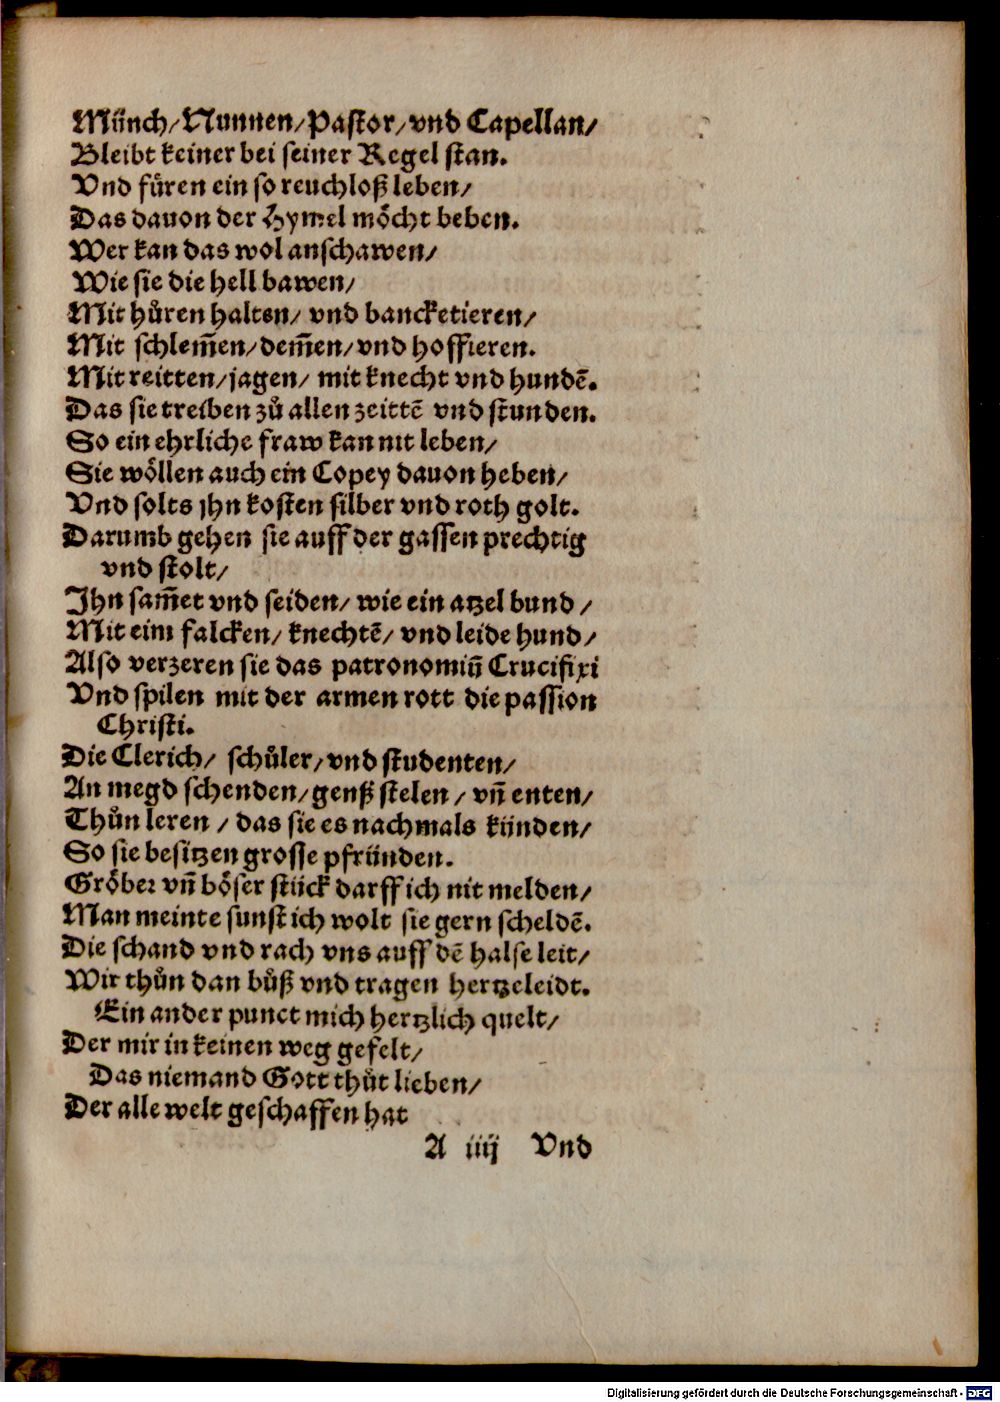 Münch/Nunnen/Pastor/vnd Capellan/
Bleibt keiner bei seiner Regel stan.
Vnd füren ein so reuchloß leben/
Das dauon der Hymel möcht beben.
Wer kan das wol anschawen/
Wie sie die hell bawen/
Mit hůren halten/ vnd bancketieren/
Mit schlem̄en/dem̄en/vnd hoffieren.
Mit reitten/jagen/ mit knecht vnd hundē.
Das sie treiben zů allen zeittē vnd stunden.
So ein ehrliche fraw kan nit leben/
Sie wöllen auch ein Copey dauon heben/
Vnd solts jhn kosten silber vnd roth golt.
Darumb gehen sie auff der gassen prechtig
vnd stolt/
Jhn sam̄et vnd seiden/ wie ein atzel bund/
Mit eim falcken/ knechtē/ vnd leide hund/
Also verzeren sie das patronomiū Crucifixi
Vnd spilen mit der armen rott die passion
Christi.
Die Clerich/ schůler/vnd studenten/
An megd schenden/genß stelen/ vn̄ enten/
Thůn leren/ das sie es nachmals künden/
So sie besitzen grosse pfründen.
Gröber vn̄ böser stück darff ich nit melden/
Man meinte sunst ich wolt sie gern scheldē.
Die schand vnd rach vns auff dē halse leit/
Wir thůn dan bůß vnd tragen hertzeleidt.
Ein ander punct mich hertzlich quelt/
Der mir in keinen weg gefelt/
Das niemand Gott thůt lieben/
Der alle welt geschaffen hat
A iiij Vnd
Digitalisierung gefördert durch die Deutsche Forschungsgemeinschaft - DFG